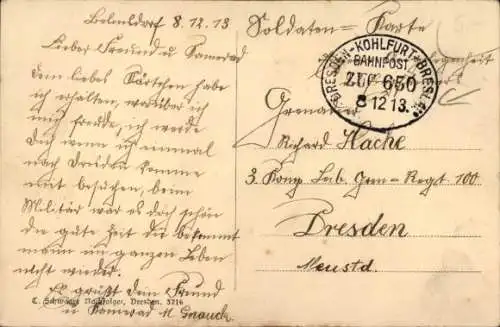 8.12.13
Lieber Freund u Kamerad
dein liebes Kärtchen habe
ich erhalten, worüber ich
mich freude, ich werde
Dich wenn ich einmal
nach Dresden komme
mit besuchen, beim
Militär war es doch schön
die gute Zeit die bekommt
mann im ganzen Leben
nicht wieder.
Es grüßt dein Freund
u Kamerad M.
C. Schwager Nachfolger, Dresden. 5716
Soldaten = Karte
DRESDEN-KOHLFURT-BRESLAU
BAHNPOST
ZUG 650
8 12 13.
Grenadier
Richard Hache
3. Komp Leib. Gren-Regt. 100
Dresden
Neustd.